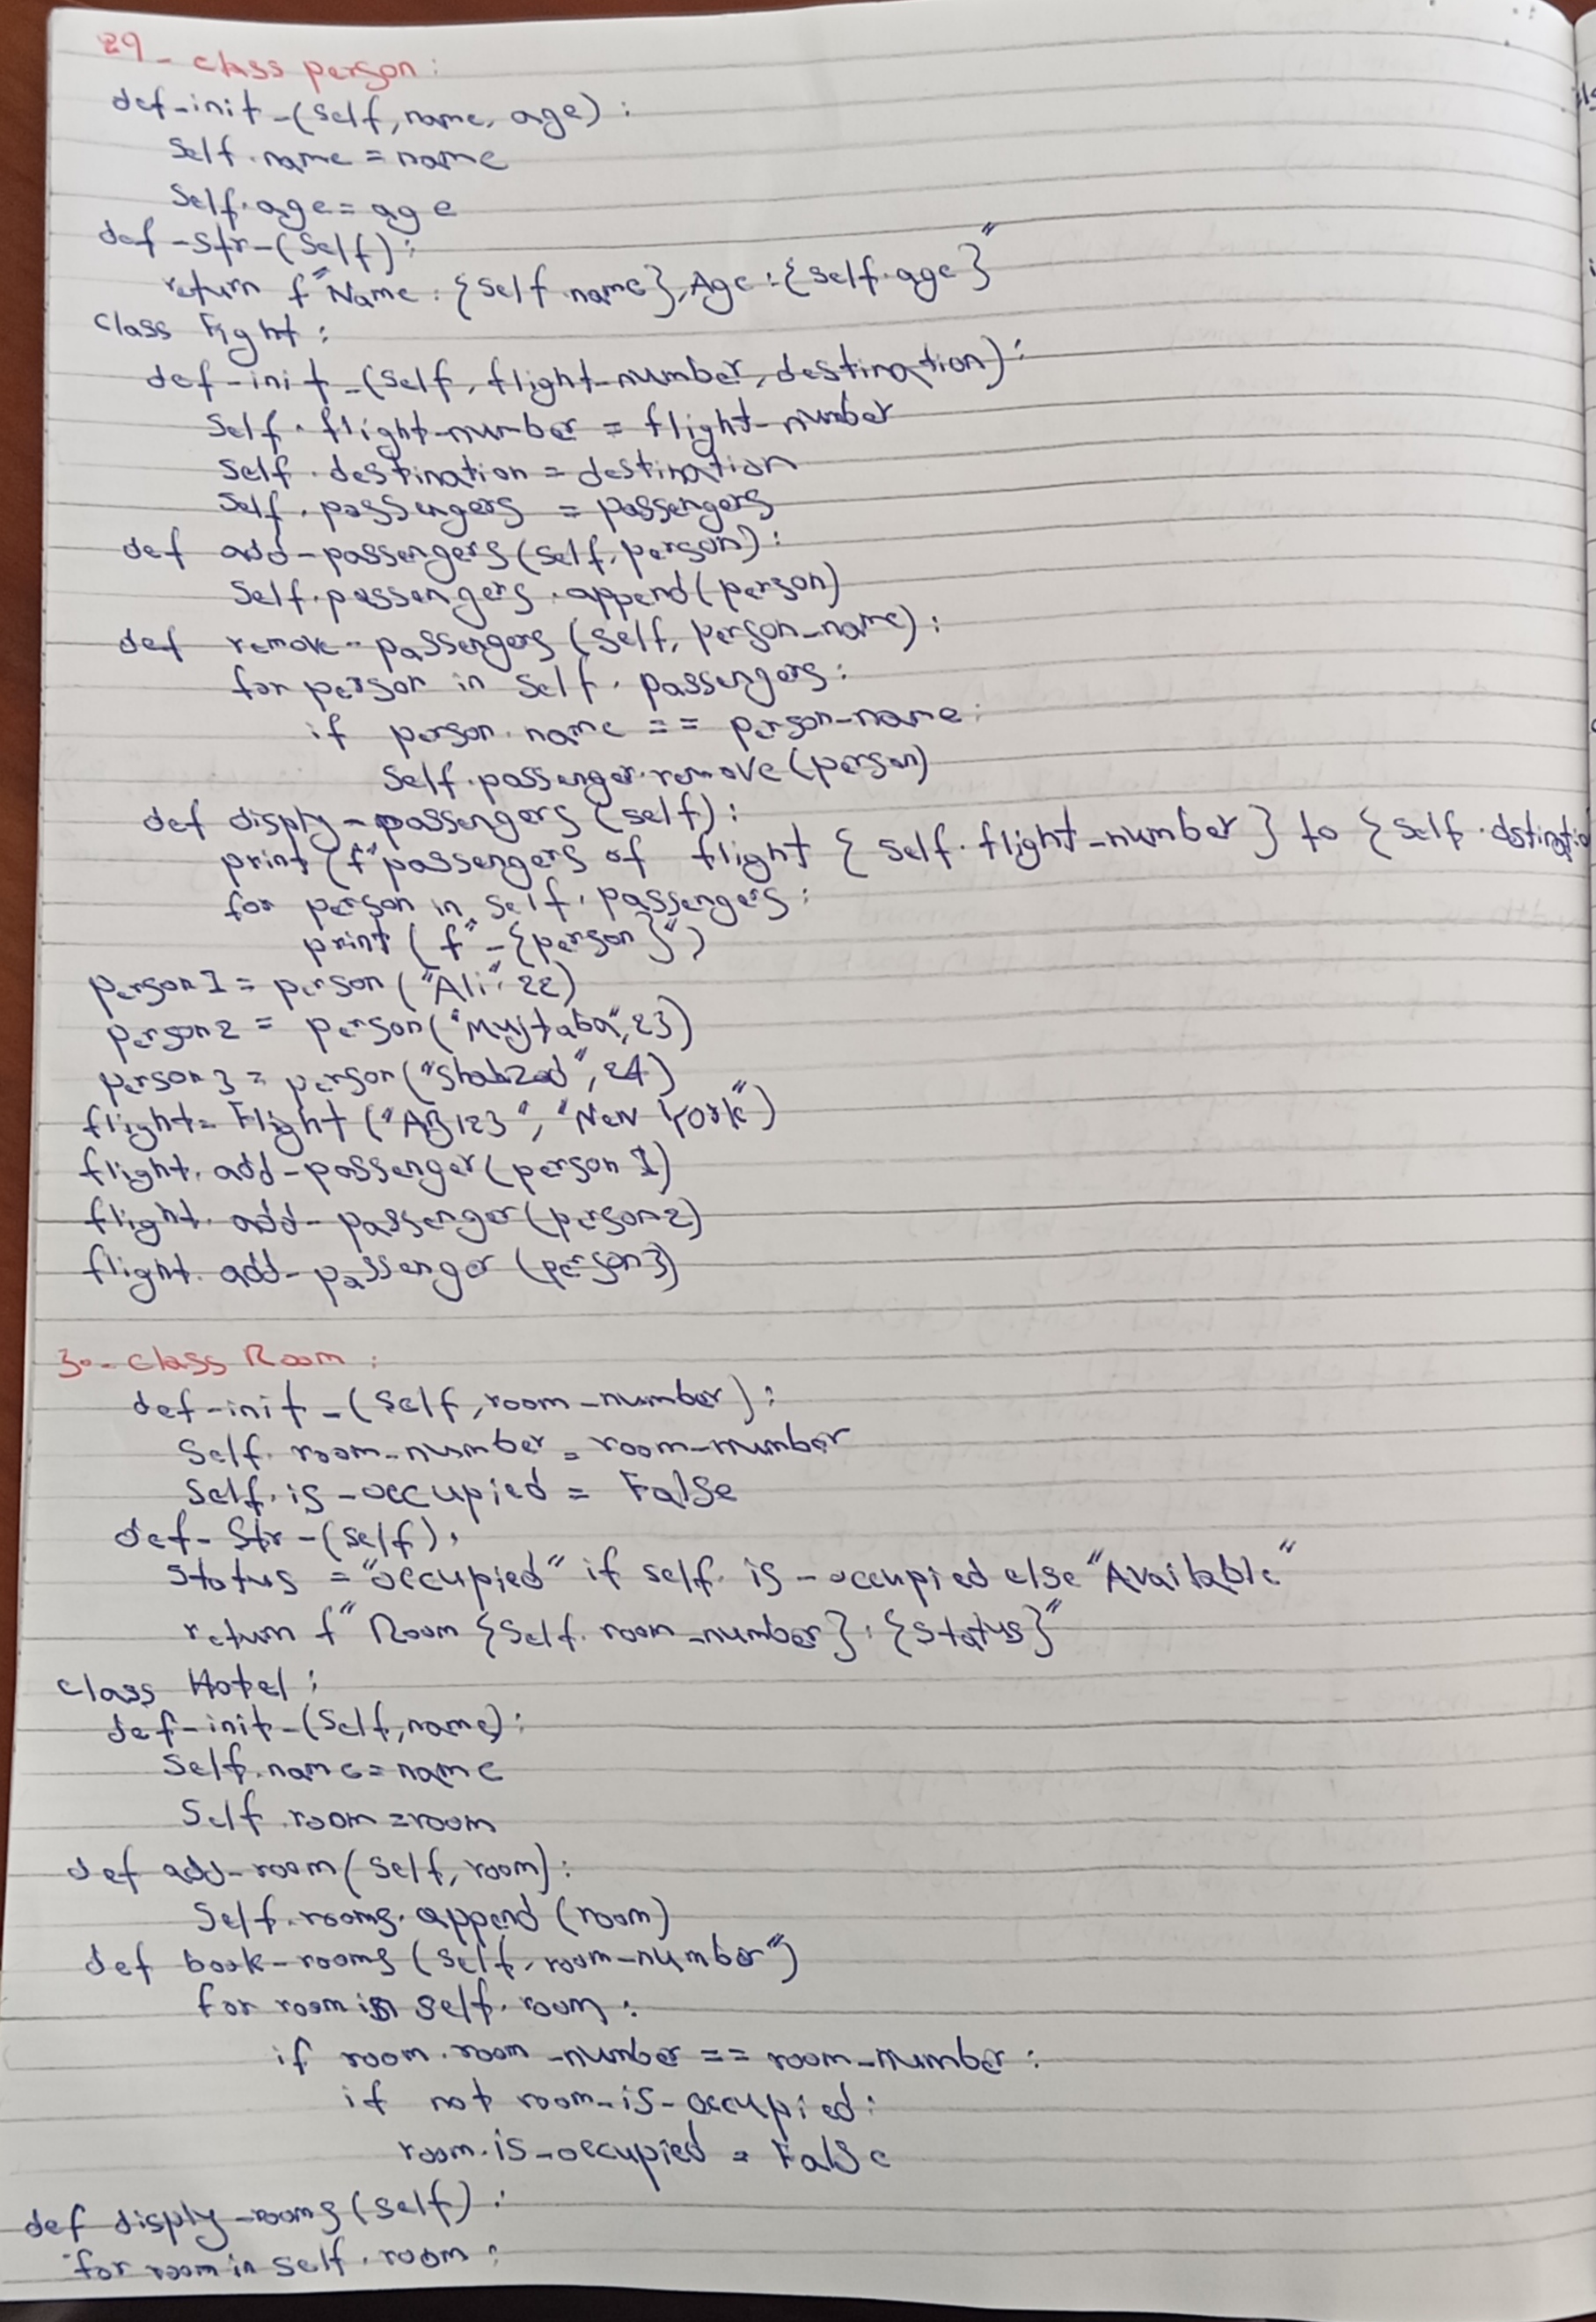 29- class person:
def-init-(self, name, age):
self.name = name
self.age = age
def-str-(self):
return f"Name: {self.name}, Age: {self.age}"
class Fight:
def-init-(self, flight-number, destination):
self.flight-number = flight-number
self.destination = destination
self.passengers = passengers
def add-passengers(self, person):
self.passengers.append(person)
def remove-passengers(self, person-name):
for person in self.passengers:
if person.name == person-name:
self.passenger.remove(person)
def disply-passengers(self):
print(f"passengers of flight {self.flight-number} to {self.dstinatio
for person in self.passengers:
print(f"-{person}")
person1 = person("Ali", 22)
person2 = person("Mujtaba", 23)
person3 = person("Shahzad", 24)
flight= Flight("AB123", "New York")
flight.add-passenger(person1)
flight.add-passenger(person2)
flight.add-passenger(person3)
30- class Room:
def-init-(self, room-number):
self.room-number = room-number
self.is-occupied = False
def-str-(self):
status = "occupied" if self.is-occupied else "Available"
return f"Room {self.room-number}: {status}"
class Hotel:
def-init-(self, name):
self.name = name
self.room = room
def add-room(self, room):
self.rooms.append(room)
def book-rooms(self, room-number")
for room in self.room:
if room.room-number == room-number:
if not room-is-occupied:
room.is-occupied = False
def disply-rooms(self):
for room in self.room: